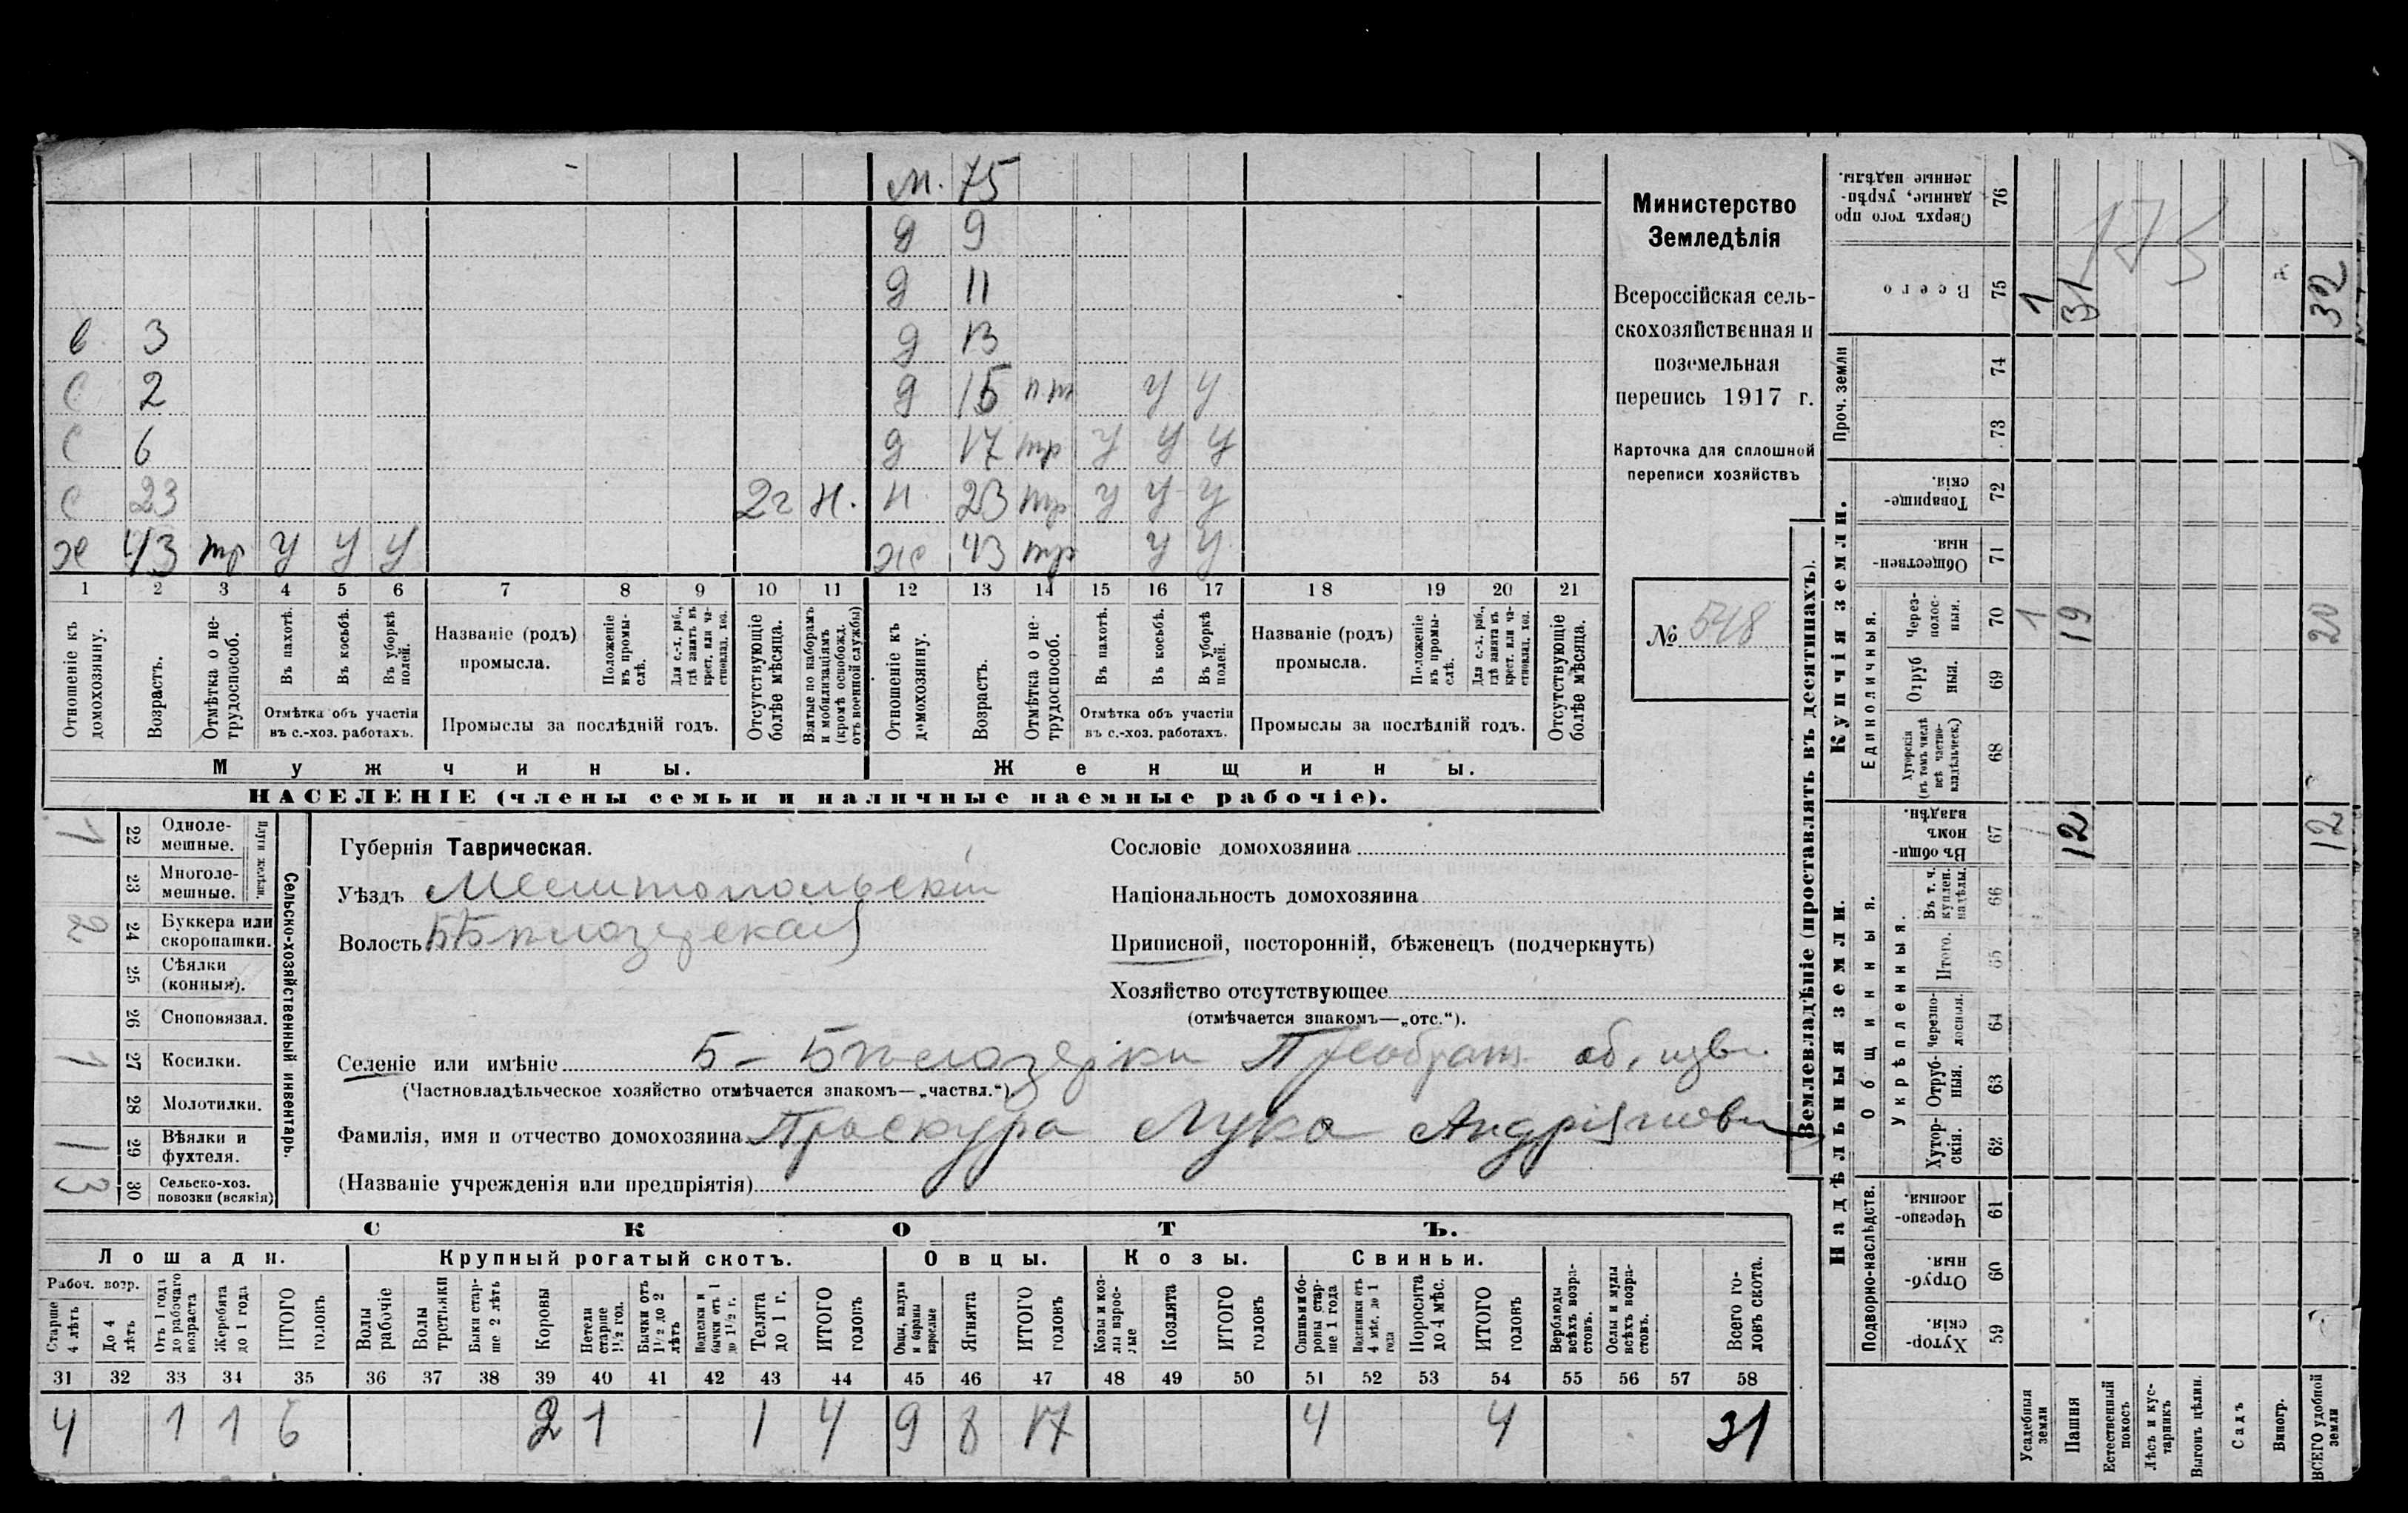 м. 75
д 9
д 11
в 3 д 13
С 2 д 15 п.т у у
С 6 д 17 тр у у у
С 23 2г н. н 23 тр у у у
х 43 тр у у у ж 43 тр у у
1 2 3 4 5 6 7 8 9 10 11 12 13 14 15 16 17 18 19 20 21
Отношеніе къ домохозяину.
Возрастъ.
Отмѣтка о нетрудоспособ.
Въ пахотѣ.
Въ косьбѣ.
Въ уборкѣ полей.
Отмѣтка объ участіи въ с.-хоз. работахъ.
Названіе (родъ) промысла.
Положеніе въ промыслѣ.
Для с.-х. раб., гдѣ занятъ въ крест. или частновлад. хоз.
Промыслы за послѣдній годъ.
Отсутствующіе болѣе мѣсяца.
Взятые по наборамъ и мобилизаціямъ (кромѣ освобожд. отъ военной службы)
Отношеніе къ домохозяину.
Возрастъ.
Отмѣтка о нетрудоспособ.
Въ пахотѣ.
Въ косьбѣ.
Въ уборкѣ полей.
Отмѣтка объ участіи въ с.-хоз. работахъ.
Названіе (родъ) промысла.
Положеніе въ промыслѣ.
Для с.-х. раб., гдѣ занята въ крест. или частновлад. хоз.
Промыслы за послѣдній годъ.
Отсутствующіе болѣе мѣсяца.
Мужчины. Женщины.
НАСЕЛЕНІЕ (члены семьи и наличные наемные рабочіе).
Министерство
Земледѣлія
Всероссійская сель-
скохозяйственная и
поземельная
перепись 1917 г.
Карточка для сплошной
переписи хозяйствъ
№ 548
Плуги желѣзн.
1 22 Однолемешные.
23 Многолемешные.
2 24 Буккера или скоропашки.
25 Сѣялки (конныя).
26 Сноповязал.
1 27 Косилки.
28 Молотилки.
1 29 Вѣялки и фухтеля.
3 30 Сельско-хоз. повозки (всякія)
Сельско-хозяйственный инвентарь.
Губернія Таврическая.
Уѣздъ Мелитопольскій
Волость Б Бѣлозерская
Сословіе домохозяина
Національность домохозяина
Приписной, посторонній, бѣженецъ (подчеркнуть)
Хозяйство отсутствующее
(отмѣчается знакомъ—„отс.“).
Селеніе или имѣніе Б – Бѣлозерки Преображ. общ
(Частновладѣльческое хозяйство отмѣчается знакомъ—„частвл.“)
Фамилія, имя и отчество домохозяина Проскура Лука Андріянови
(Названіе учрежденія или предпріятія)
СКОТЪ.
Лошади. Крупный рогатый скотъ. Овцы. Козы. Свиньи.
Рабоч. возр.
Старше 4 лѣтъ
До 4 лѣтъ
Отъ 1 года до рабочаго возраста
Жеребята до 1 года
ИТОГО головъ
Волы рабочіе
Волы третьяки
Быки старше 2 лѣтъ
Коровы
Нетели старше 1½ год.
Бычки отъ 1½ до 2 лѣтъ
Подтелки и бычки отъ 1 до 1½ г.
Телята до 1 г.
ИТОГО головъ
Овцы, валухи и бараны взрослые
Ягнята
ИТОГО головъ
Козы и козлы взрослые
Козлята
ИТОГО головъ
Свиньи и боровы старше 1 года
Подсвинки отъ 4 мѣс. до 1 года
Поросята до 4 мѣс.
ИТОГО головъ
Верблюды всѣхъ возрастовъ.
Ослы и мулы всѣхъ возрастовъ.
Всего головъ скота.
31 32 33 34 35 36 37 38 39 40 41 42 43 44 45 46 47 48 49 50 51 52 53 54 55 56 57 58
4 1 1 6 2 1 1 4 9 8 17 4 4 31
Землевладѣніе (проставлять въ десятинахъ).
Надѣльныя земли.
Подворно-наслѣдств.
Хуторскія 59
Отрубныя 60
Черезполосныя. 61
Общинныя.
Укрѣпленныя.
Хуторскія. 62
Отрубныя. 63
Черезполосныя. 64
Итого. 65
Въ т. ч. куплен. надѣлы. 66
Въ общинномъ владѣн. 67 12 12
Купчія земли.
Единоличныя.
Хуторскія (въ томъ числѣ всѣ частновладѣльческ.) 68
Отрубныя. 69
Черезполосныя. 70 1 19 20
Общественныя. 71
Товарищескія. 72
Проч. земли
73
74
Всего 75 1 31 32
Сверхъ того проданные, укрѣпленные надѣлы. 76
175
Усадебныя земли
Пашня
Естественный покосъ
Лѣсъ и кустарникъ
Выгонъ цѣлин.
Садъ
Виногр.
ВСЕГО удобной земли